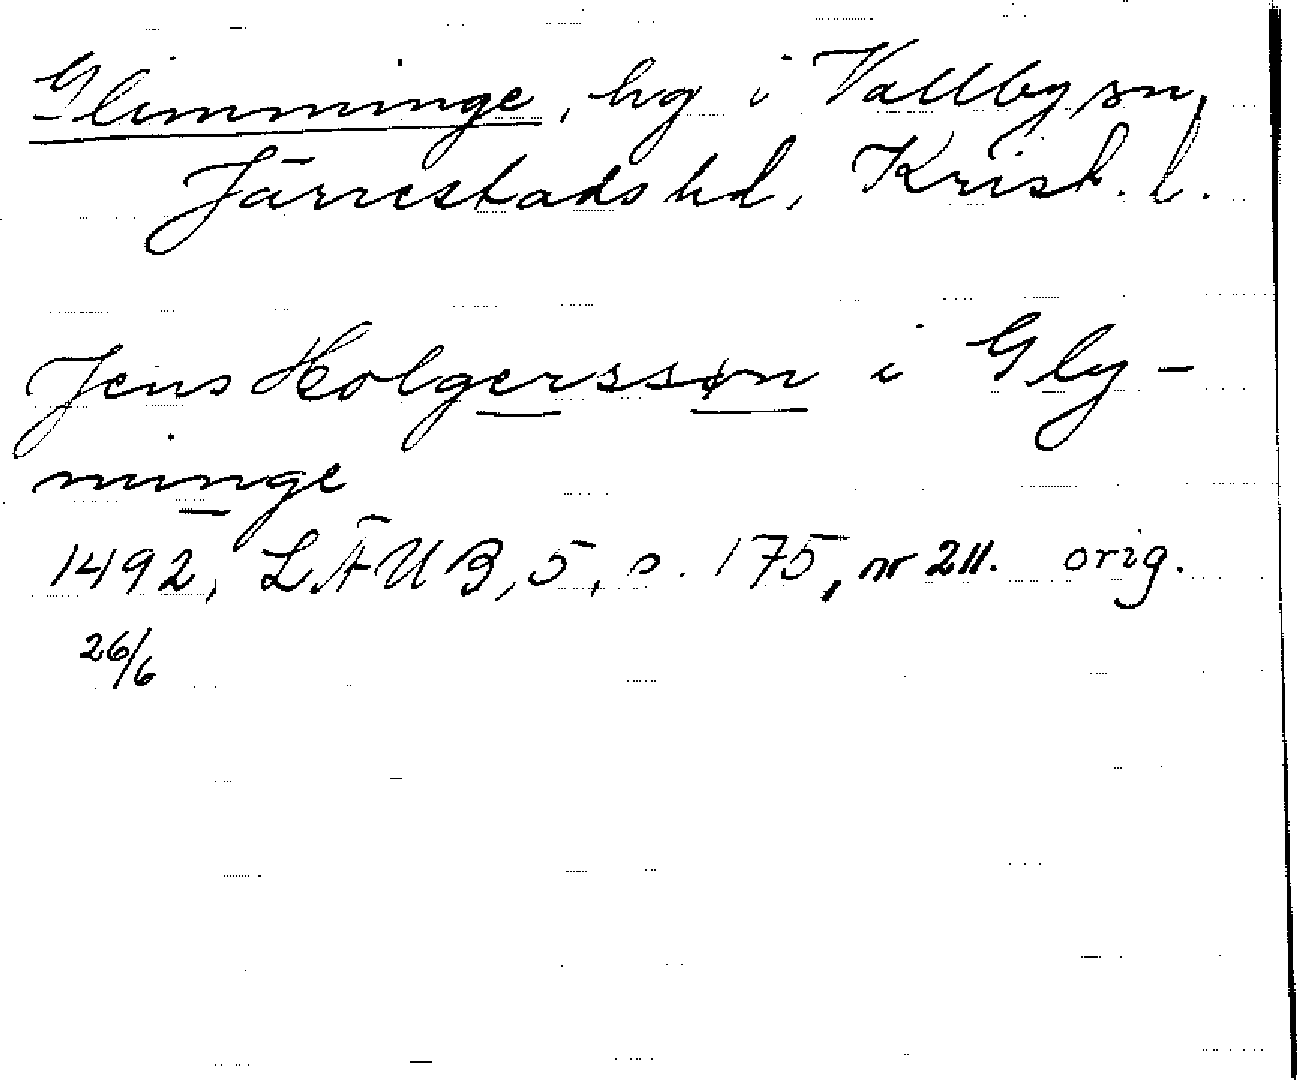 Glimminge, hg i Vallby sn,
Järrestads hd, Krist. l.
Jens Holgerssøn i Gly-
minge
1492, LÄUB, 5, s. 175, nr 211. orig.
26/6